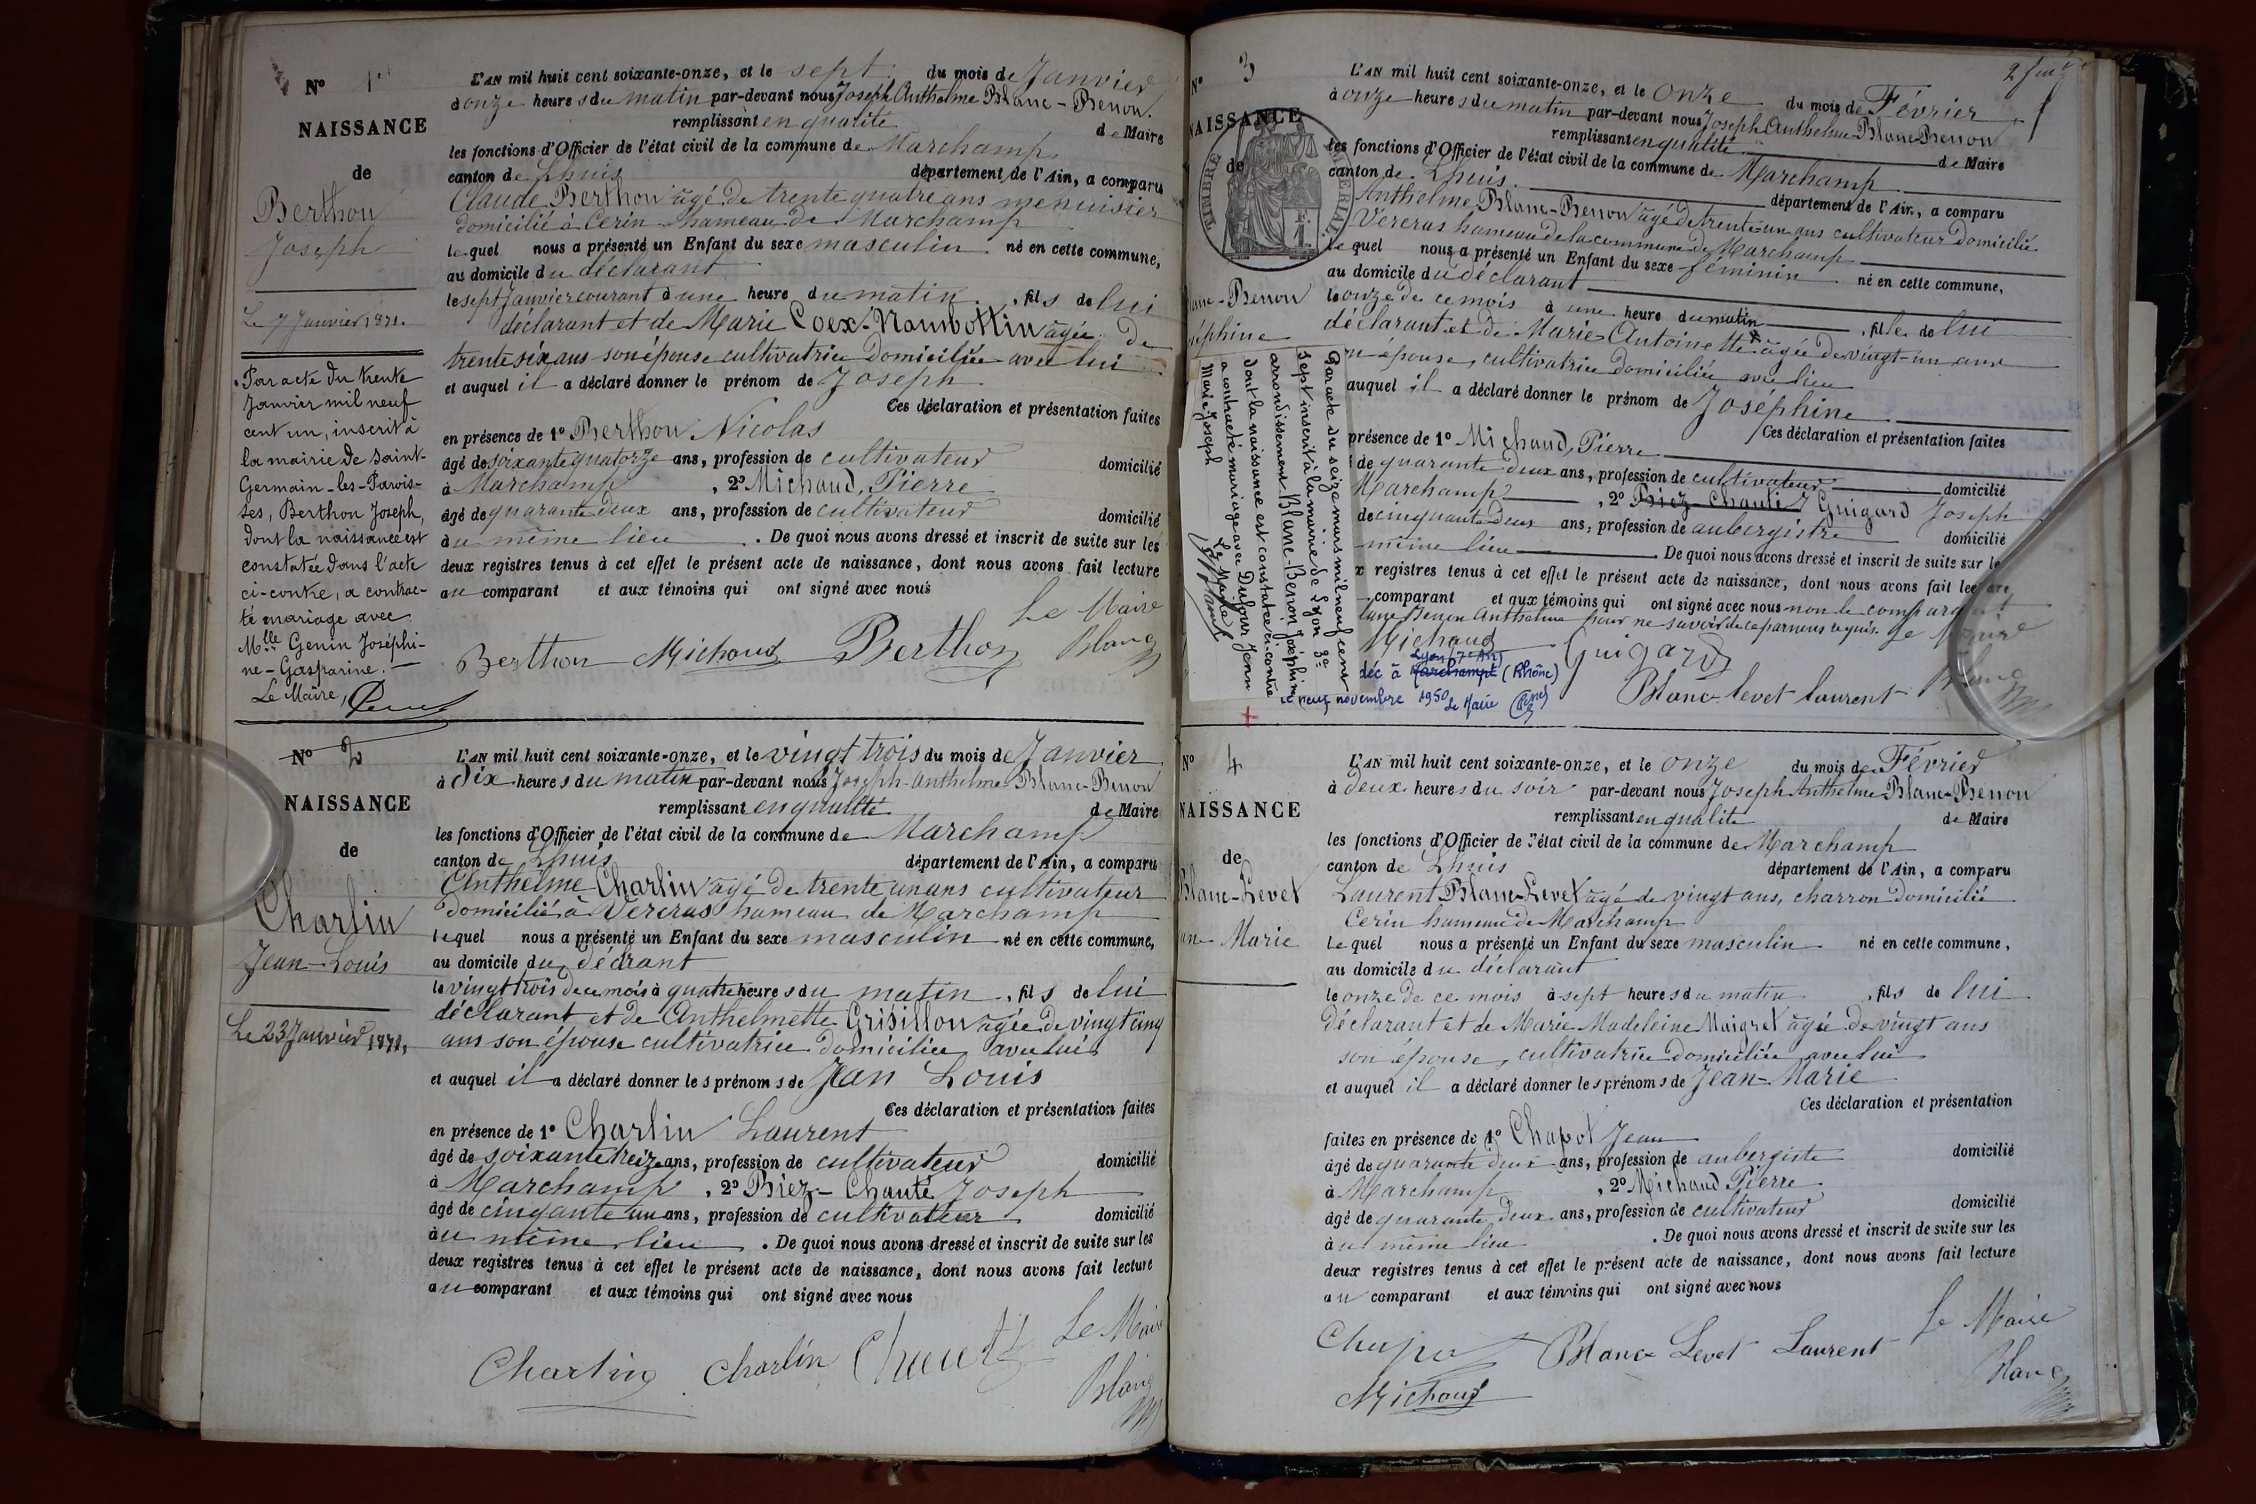 N° 1er
NAISSANCE
de
Berthon
Joseph
Le 7 Janvier 1871.
Par acte du trente
Janvier mil neuf
cent un, inscrit à
la mairie de Saint-
Germain-les-Parois-
ses, Berthon Joseph,
dont la naissance est
constatée dans l'acte
ci-contre, a contrac-
té mariage avec
Mlle Genin Joséphi-
ne-Gasparine.
Le Maire,
L'AN mil huit cent soixante-onze, et le sept du mois de Janvier
à onze heures du matin par-devant nous Joseph Anthelme Blanc-Benon.
remplissant en qualité de Maire
les fonctions d'Officier de l'état civil de la commune de Marchamp
canton de Lhuis département de l'Ain, a comparu
Claude Berthon âgé de trente quatre ans menuisier
domicilié à Cerin hameau de Marchamp
lequel nous a présenté un Enfant du sexe masculin né en cette commune,
au domicile du déclarant
le sept Janvier courant à une heure du matin, fils de lui
déclarant et de Marie Coex-Nambottin âgée de
trente six ans son épouse cultivatrice domiciliée avec lui
et auquel il a déclaré donner le prénom de Joseph
Ces déclaration et présentation faites
en présence de 1° Berthon Nicolas
âgé de soixante quatorze ans, profession de cultivateur domicilié
à Marchamp, 2° Michaud, Pierre
âgé de quarante deux ans, profession de cultivateur domicilié
au même lieu. De quoi nous avons dressé et inscrit de suite sur les
deux registres tenus à cet effet le présent acte de naissance, dont nous avons fait lecture
au comparant et aux témoins qui ont signé avec nous
Le Maire
Berthon Michaud Berthon Blanc
N° 2
NAISSANCE
de
Charlin
Jean-Louis
Le 23 Janvier 1871,
L'AN mil huit cent soixante-onze, et le vingt trois du mois de Janvier
à dix heures du matin par-devant nous Joseph-Anthelme Blanc-Benon
remplissant en qualité de Maire
les fonctions d'Officier de l'état civil de la commune de Marchamp
canton de Lhuis département de l'Ain, a comparu
Anthelme Charlin âgé de trente un ans cultivateur
domicilié à Vercras hameau de Marchamp
lequel nous a présenté un Enfant du sexe masculin né en cette commune,
au domicile du décrant
le vingt trois de ce mois à quatre heures du matin, fils de lui
déclarant et de Anthelmette Grisillon âgée de vingt cinq
ans son épouse cultivatrice domiciliée avec lui
et auquel il a déclaré donner les prénoms de Jean Louis
Ces déclaration et présentation faites
en présence de 1° Charlin Laurent
âgé de soixante treize ans, profession de cultivateur domicilié
à Marchamp, 2° Biez-Chanté Joseph
âgé de cinqante un ans, profession de cultivateur domicilié
au même lieu. De quoi nous avons dressé et inscrit de suite sur les
deux registres tenus à cet effet le présent acte de naissance, dont nous avons fait lecture
au comparant et aux témoins qui ont signé avec nous
Le Maire
Charlin Charlin
Blanc
N° 3
NAISSANCE
de
TIMBRE IMPÉRIAL
Blanc-Benon
Joséphine
Par acte du seize mars mil neuf cent
sept inscrit à la mairie de Lyon 3e
arrondissement Blanc-Benon Joséphine
dont la naissance est constatée ci-contre
a contracté mariage avec Dufour Jean
Marie Joseph
Le Maire
2
L'AN mil huit cent soixante-onze, et le onze du mois de Février
à onze heures du matin par-devant nous Joseph Anthelme Blanc-Benon
remplissant en qualité de Maire
les fonctions d'Officier de l'état civil de la commune de Marchamp
canton de Lhuis département de l'Ain, a comparu
Anthelme Blanc-Benon âgé de trente un ans cultivateur domicilié
Vercras hameau de la commune de Marchamp
lequel nous a présenté un Enfant du sexe féminin né en cette commune,
au domicile du déclarant
le onze de ce mois à une heure du matin, fille de lui
déclarant et de Marie Antoinette âgée de vingt-un ans
épouse, cultivatrice domiciliée avec lieu
auquel il a déclaré donner le prénom de Joséphine
Ces déclaration et présentation faites
présence de 1° Michaud, Pierre
de quarante deux ans, profession de cultivateur domicilié
Marchamp, 2° Biez-Chanté Guigard Joseph
de cinquante deux ans, profession de aubergiste domicilié
même lieu. De quoi nous avons dressé et inscrit de suite sur les
registres tenus à cet effet le présent acte de naissance, dont nous avons fait lecture
comparant et aux témoins qui ont signé avec nous non le comparant
Blanc Benon Anthelme pour ne savoir de ce par nous requis. Le Maire
Michaud Guigard
Lyon (7e Arr)
déc à Marchampt (Rhône)
le neuf novembre 1950 Le Maire
Blanc-levet laurent Blanc
N° 4
NAISSANCE
de
Blanc-Levet
Jean-Marie
L'AN mil huit cent soixante-onze, et le onze du mois de Février
à deux heures du soir par-devant nous Joseph Anthelme Blanc-Benon
remplissant en qualité de Maire
les fonctions d'Officier de l'état civil de la commune de Marchamp
canton de Lhuis département de l'Ain, a comparu
Laurent Blanc-Levet âgé de vingt ans, charron domicilié
Cerin hameau de Marchamp
lequel nous a présenté un Enfant du sexe masculin né en cette commune,
au domicile du déclarant
le onze de ce mois à sept heures du matin, fils de lui
déclarant et de Marie Madeleine Maigret âgée de vingt ans
son épouse, cultivatrice domiciliée avec lui
et auquel il a déclaré donner les prénoms de Jean-Marie
Ces déclaration et présentation
faites en présence de 1° Chapot Jean
âgé de quarante deux ans, profession de aubergiste domicilié
à Marchamp, 2° Michaud Pierre
âgé de quarante deux ans, profession de cultivateur domicilié
au même lieu. De quoi nous avons dressé et inscrit de suite sur les
deux registres tenus à cet effet le présent acte de naissance, dont nous avons fait lecture
au comparant et aux témoins qui ont signé avec nous
Le Maire
Chapot Blanc Levet Laurent
Blanc
Michaud